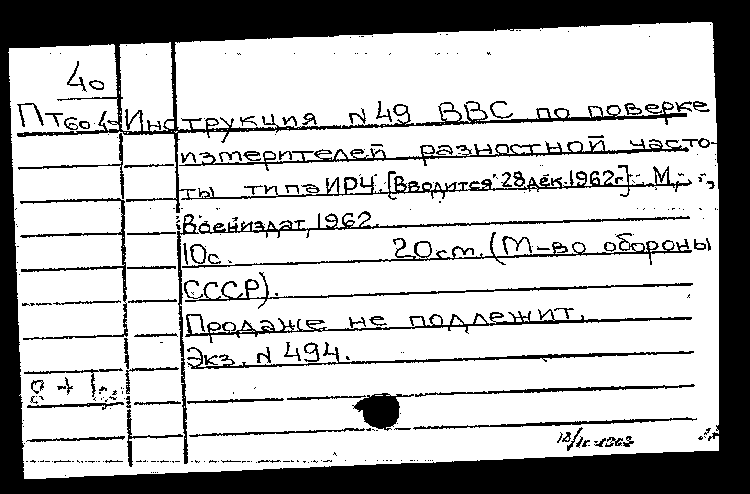 40
Пт 60.40 Инструкция N49 ВВС по поверке
измерителей разностной часто-
ты типа ИРЧ. [Вводится 28 дек. 1962г.] М.,
Воениздат, 1962.
10с. 20см. (М-во обороны
СССР).
Продаже не подлежит.
Экз. N 494.
8 +